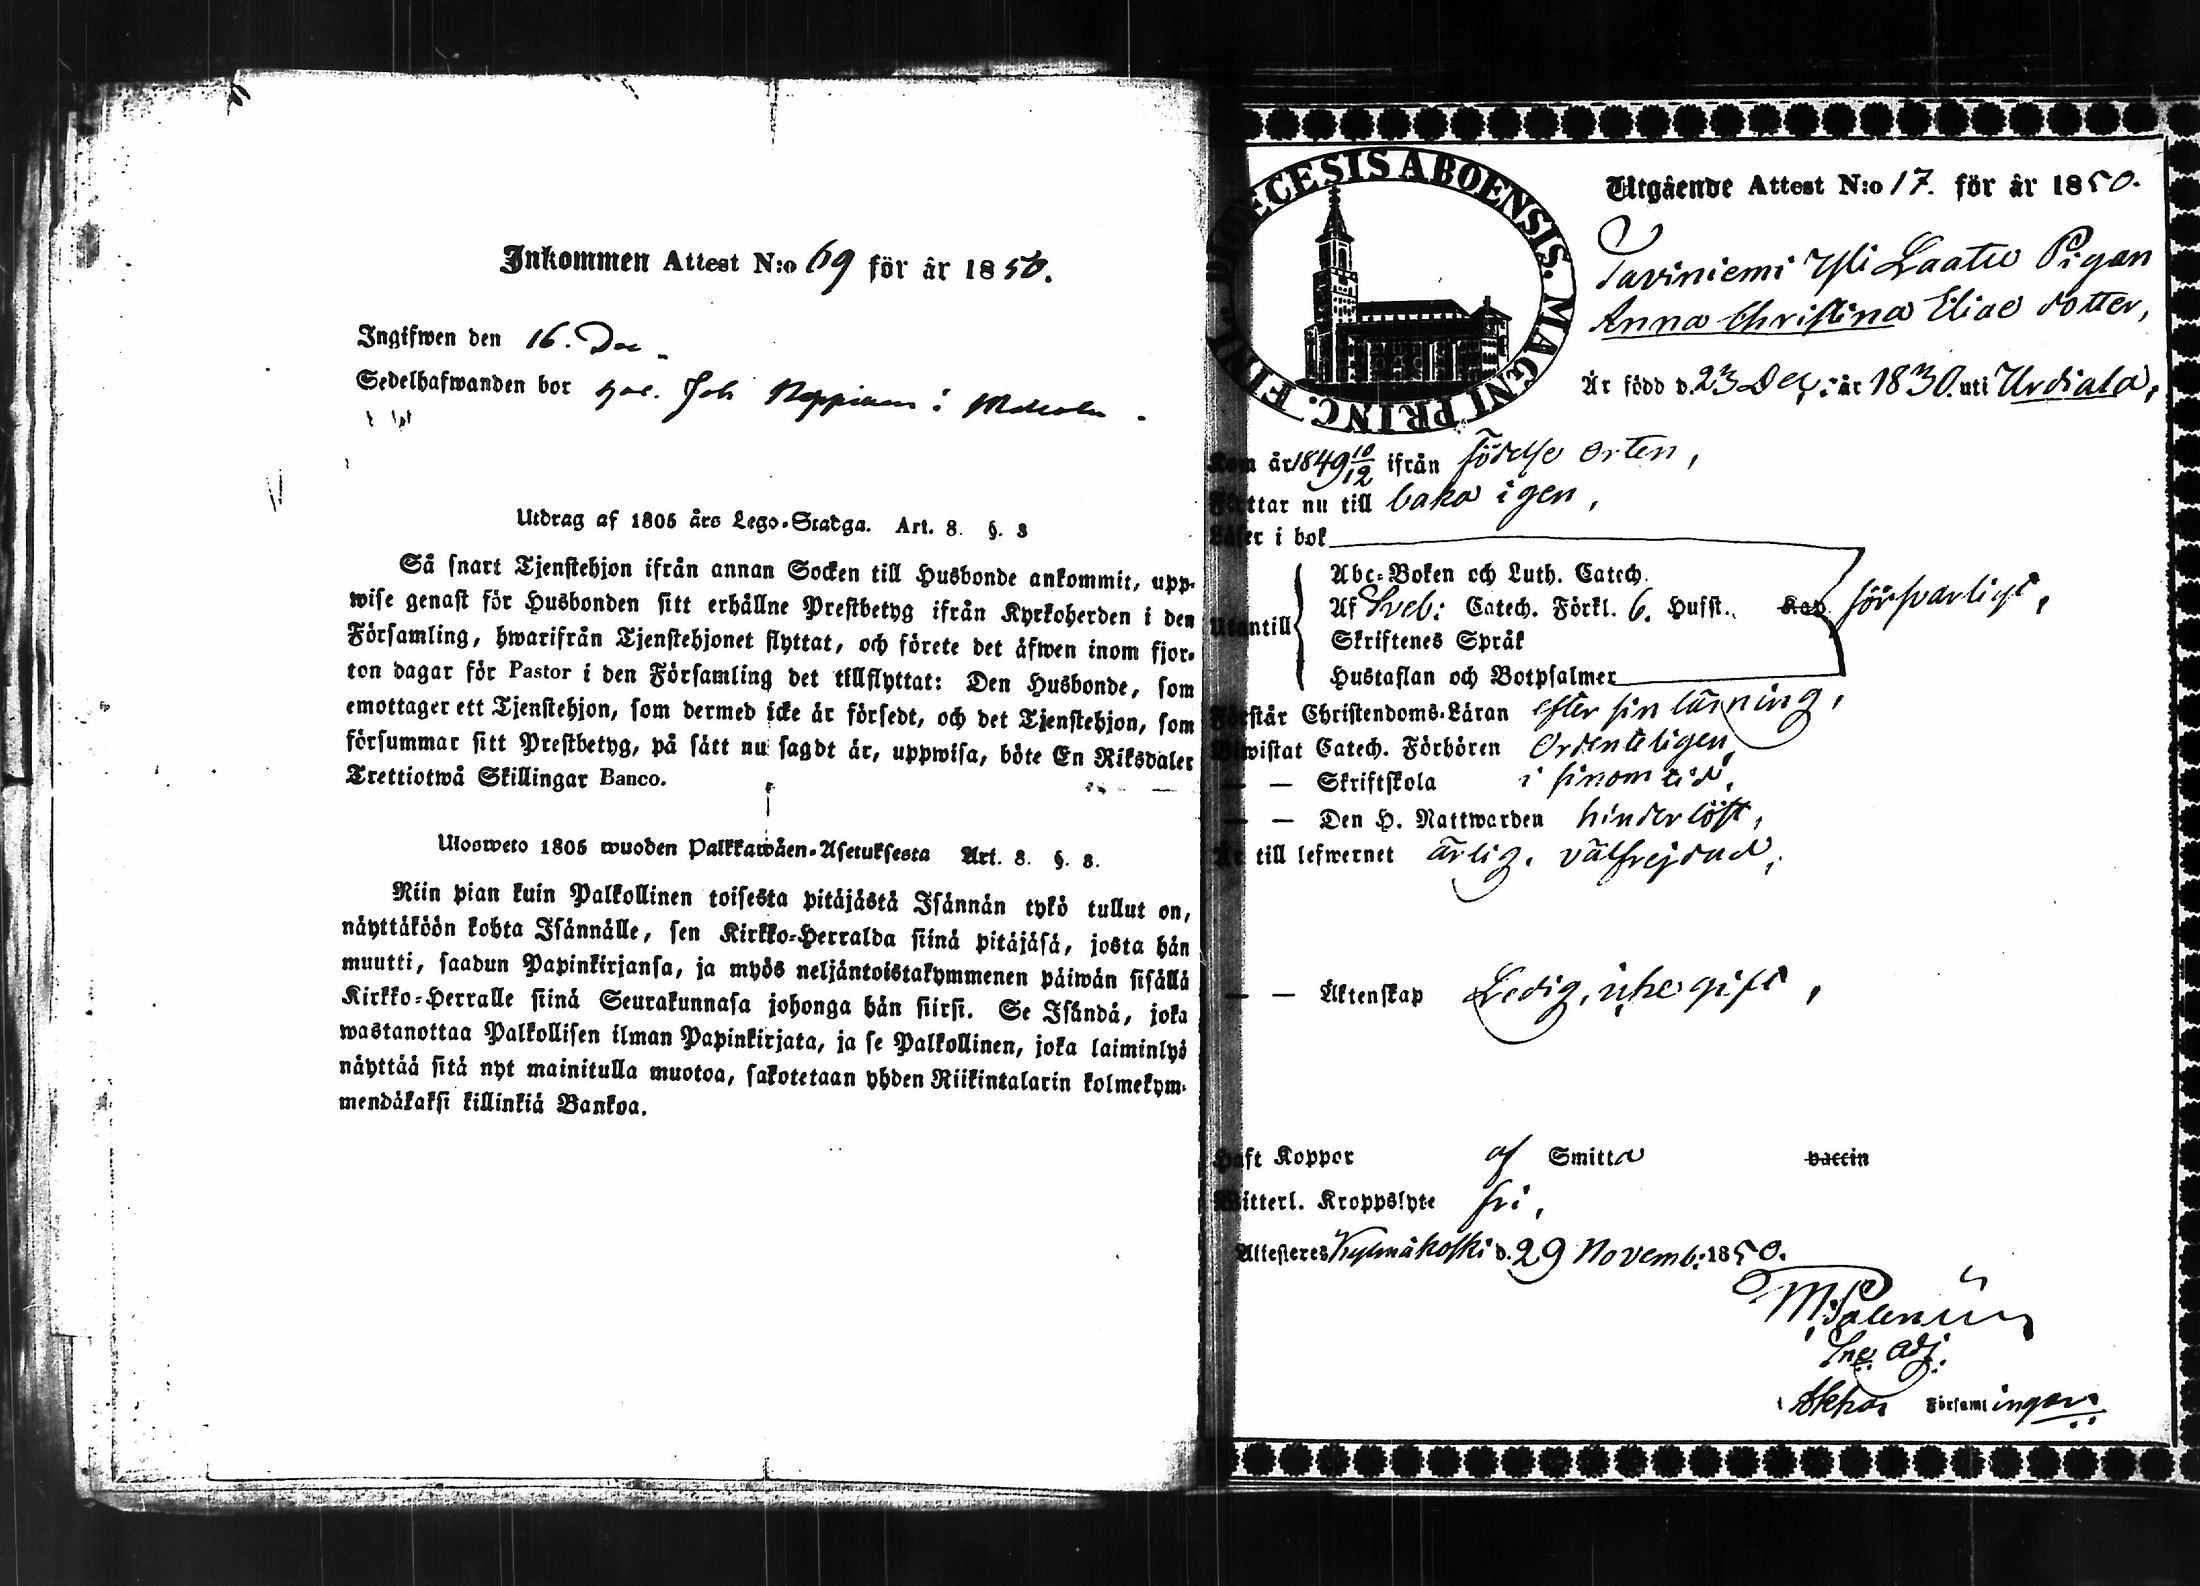 Inkommen Attest N:o 69 för år 1850.
Ingifwen den 16. Dec.
Sedelhafwanden bor hos. Joh i
Utdrag af 1805 års Lego-Stadga. Art. 8. §. 3
Så snart Tjenstehjon ifrån annan Socken till Husbonde ankommit, upp-
wise genast för Husbonden sitt erhållne Prestbetyg ifrån Kyrkoherden i den
Församling, hwarifrån Tjenstehjonet flyttat, och förete det äfwen inom fjor-
ton dagar för Pastor i den Församling det tillflyttat: Den Husbonde, som
emottager ett Tjenstehjon, som dermed icke är försedt, och det Tjenstehjon, som
försummar sitt Prestbetyg, på sätt nu sagdt är, uppwisa, böte En Riksdaler
Trettiotwå Skillingar Banco.
Ulosweto 1805 wuoden Palkkawäen-Asetuksesta Art. 8. §. 3.
Niin pian kuin Palkollinen toisesta pitäjästä Isännän tykö tullut on,
näyttäköön kohta Isännälle, sen Kirkko-Herralda siinä pitäjäsä, josta hän
muutti, saadun Papinkirjansa, ja myös neljäntoistakymmenen päiwän sisällä
Kirkko-Herralle siinä Seurakunnasa johonga hän siirsi. Se Isändä, joka
wastanottaa Palkollisen ilman Papinkirjata, ja se Palkollinen, joka laiminlyö
näyttää sitä nyt mainitulla muotoa, sakotetaan yhden Riikintalarin kolmekym-
mendäkaksi killinkiä Bankoa.
DIOECESIS ABOENSIS. MAGNI PRINC. FINL.
Utgående Attest N:o 17. för år 1850.
Taviniemi Yli Laatu Pigan
Anna Christina Eliae dotter,
Är född d. 23 Dec: år 1830. uti Urdiala,
Kom år 1849 10/12 ifrån födelse orten,
Flyttar nu till baka igen,
Läser i bok
Abc-Boken och Luth. Catech.
Utantill Af Sveb: Catech. Förkl. 6. Hufst. Kap försvarligt,
Skriftenes Språk
Hustaflan och Botpsalmer
Förstår Christendoms-Läran efter sin läsning,
Biwistat Catech. Förhören Ordenteligen,
— — Skriftskola i sinom tid,
— — Den H. Nattwarden hinderlöst,
Är till lefwernet ärlig, välfrejdad,
— — Äktenskap Ledig, icke gift,
Haft Koppor af Smitta vaccin
Witterl. Kroppslyte fri,
Attesteres Kylmäkoski d. 29 Novemb: 1850.
M:
adj.
i Akkas Församlingar